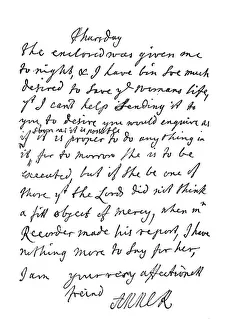 Thursday
the enclosed was given me
to night, & I have bin soe much
desired to save ys womans life,
yt I cant help sending it to
you, to desire you would enquire as
soon as it is possible
if it is proper to do any thing in
it, for to morrow she is to be
executed, but if she be one of
those yt the Lords did not think
a fitt object of mercy, when mr
Recorder made his report, I have
nothing more to say for her,
I am your very affectionett
freind
ANNE R